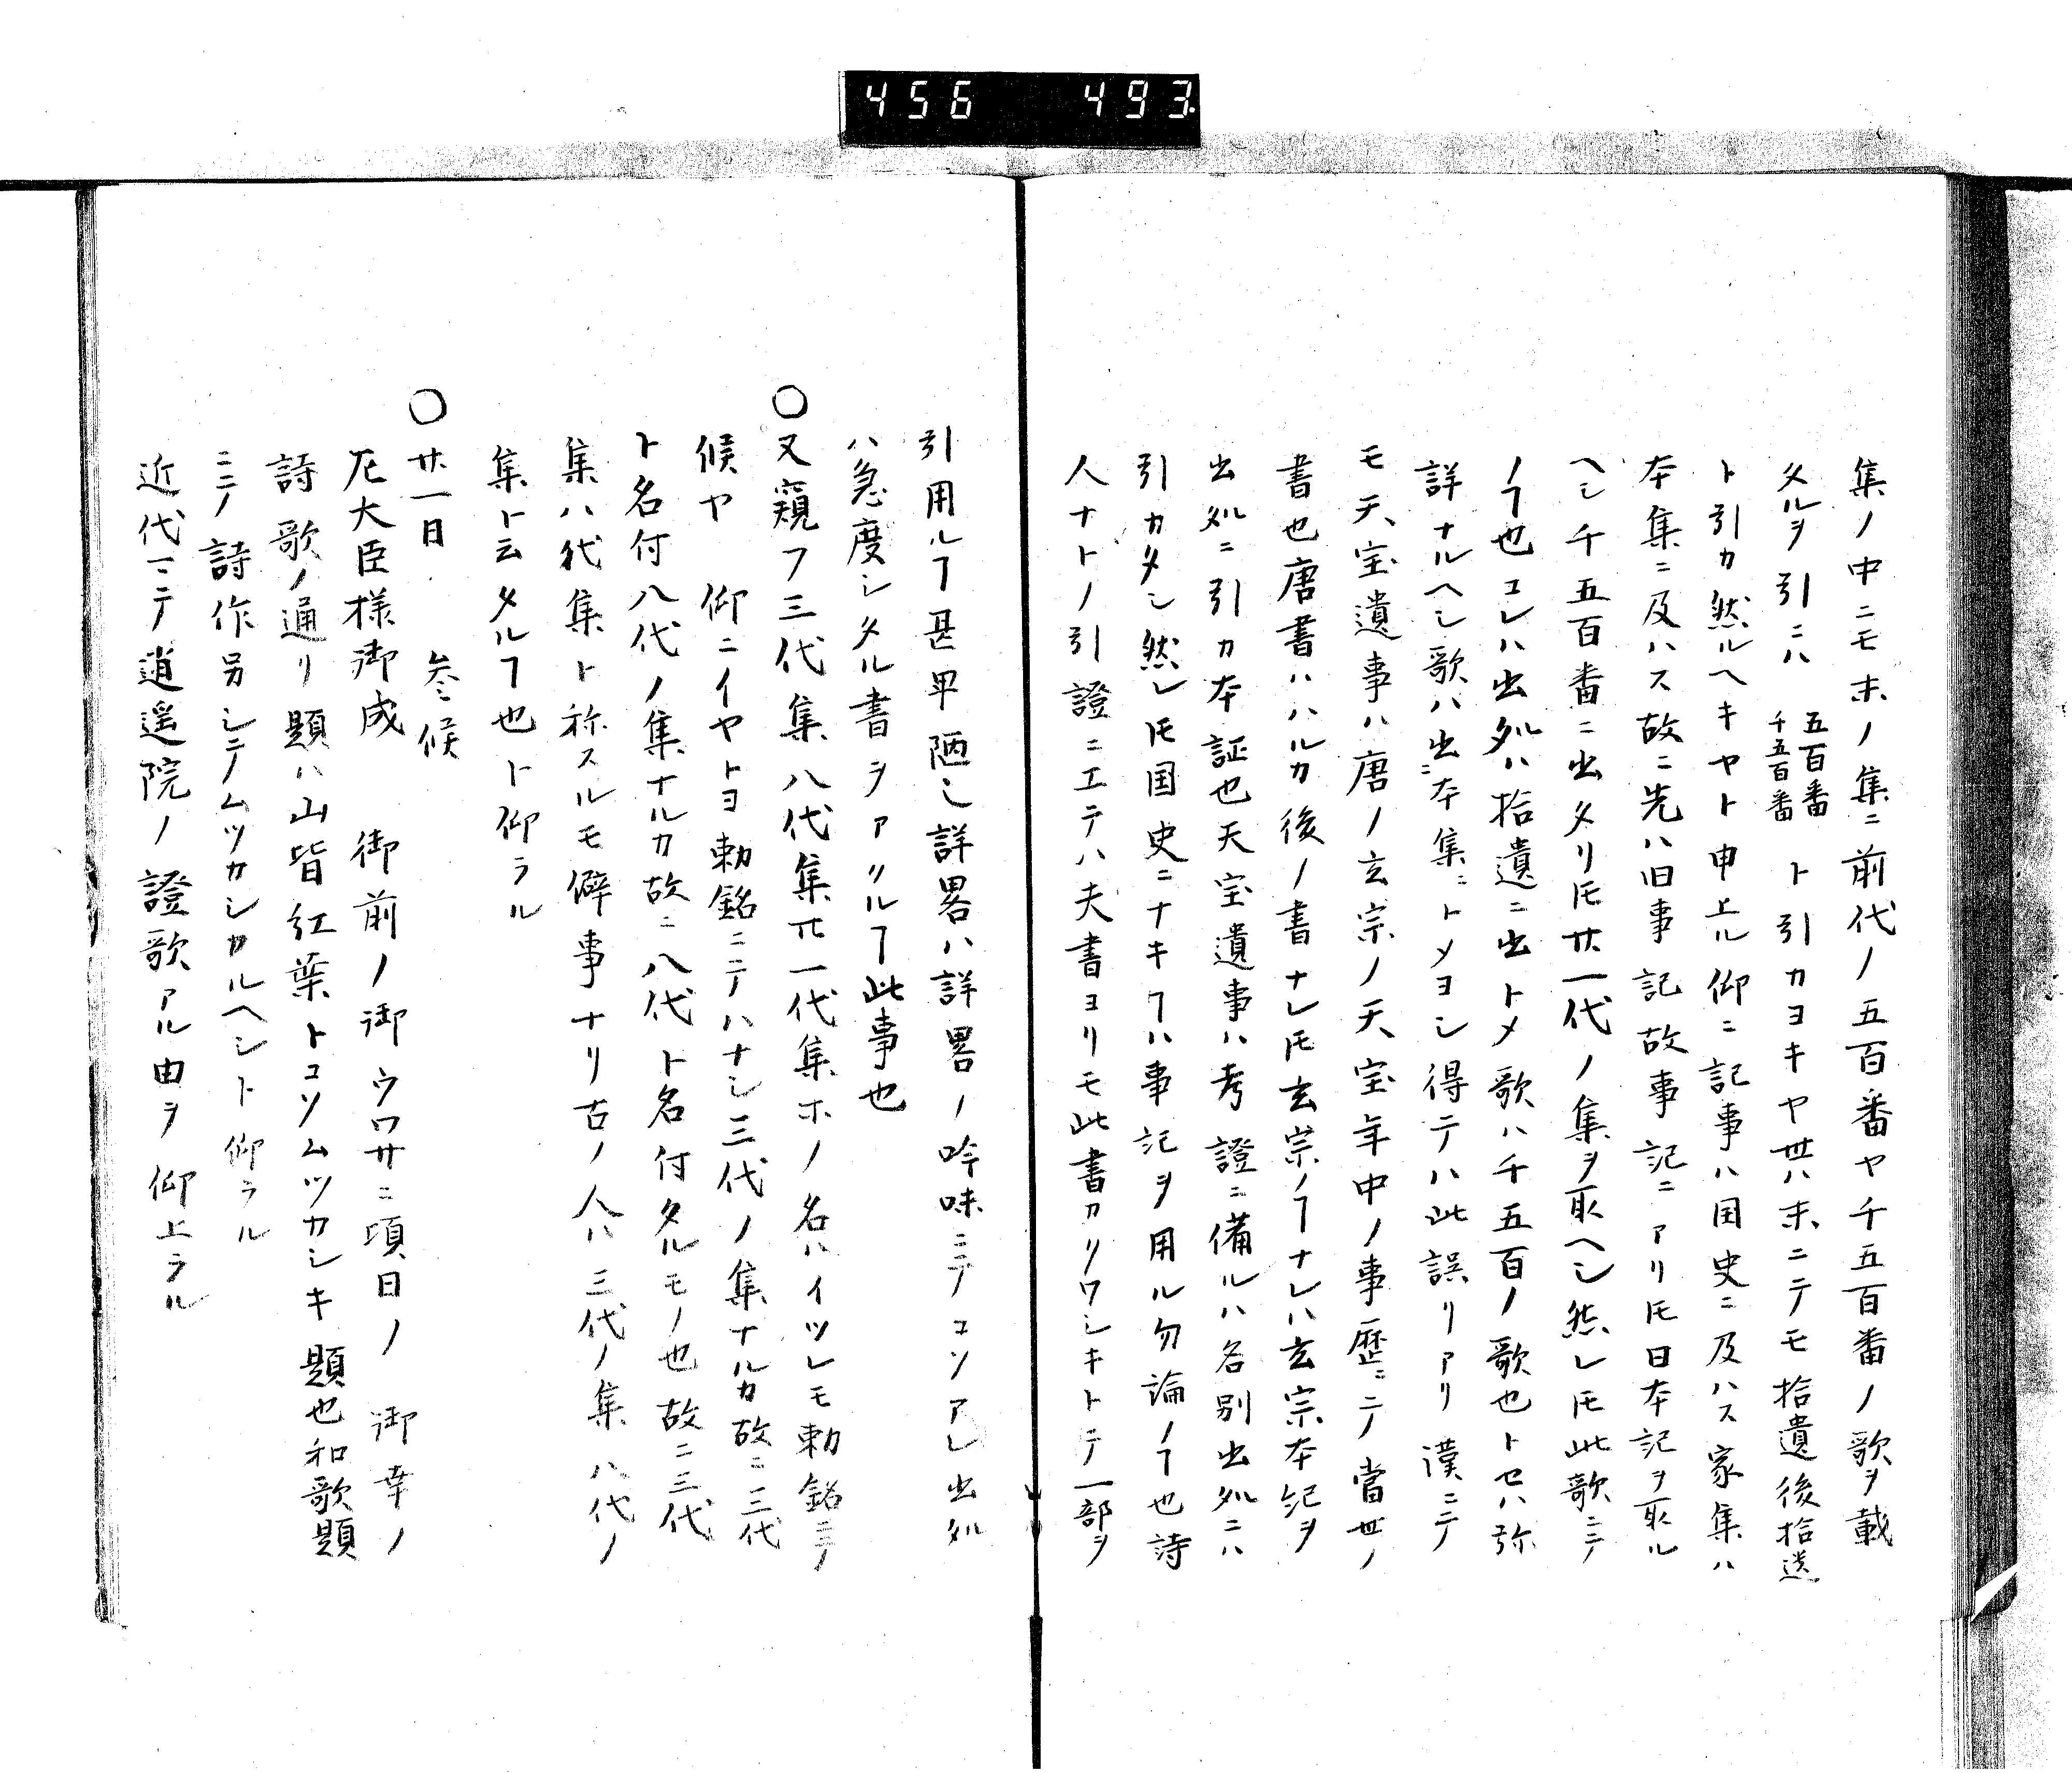 456 493
集ノ中ニモ末ノ集ニ前代ノ五百番ヤ千五百番ノ歌ヲ載
タルヲ引ニハ 五百番 千五百番 ト引カヨキヤ丗ハ末ニテモ拾遺後拾遺
ト引カ然ルヘキヤト申上ル仰ニ記事ハ国史ニ及ハス家集ハ
本集ニ及ハス故ニ先ハ旧事記故事記ニアリ𪜈日本記ヲ取ル
ヘシ千五百番ニ出タリ𪜈廿一代ノ集ヲ取ヘシ然レ𪜈此歌ニテ
ノヿ也コレハ出処ハ拾遺ニ出トメ歌ハ千五百ノ歌也トセハ弥
詳ナルヘシ歌ハ出ニ本集ニトメヨシ得テハ此誤リアリ漢ニテ
モ天宝遺事ハ唐ノ玄宗ノ天宝年中ノ事歴ニテ當世ノ
書也唐書ハハルカ後ノ書ナレ𪜈玄宗ノヿナレハ玄宗本紀ヲ
出処ニ引カ本証也天宝遺事ハ考證ニ備ルハ各別出処ニハ
引カタシ然レ𪜈国史ニナキヿハ事記ヲ用ル勿論ノヿ也詩
人ナトノ引證ニエテハ夫書ヨリモ此書カクワシキトテ一部ヲ
引用ルヿ甚卑陋シ詳畧ハ詳畧ノ吟味ニテコソアレ出処
ハ急度シタル書ヲアクルヿ此事也
○又窺フ三代集八代集廿一代集ホノ名ハイツレモ勅銘ニテ
候ヤ 仰ニイヤトヨ勅銘ニテハナシ三代ノ集ナルカ故ニ三代
ト名付八代ノ集ナルカ故ニ八代ト名付タルモノ也故ニ三代
集八代集ト称スルモ僻事ナリ古ノ人ハ三代ノ集八代ノ
集ト云タルヿ也ト仰ラル
○廿一日 参候
左大臣様御成 御前ノ御ウワサニ項日ノ 御幸ノ
詩歌ノ通リ題ハ山皆紅葉トコソムツカシキ題也和歌題
ニテノ詩作別シテムツカシカルヘシト仰ラル
近代マテ逍遥院ノ證歌アル由ヲ仰上ラル